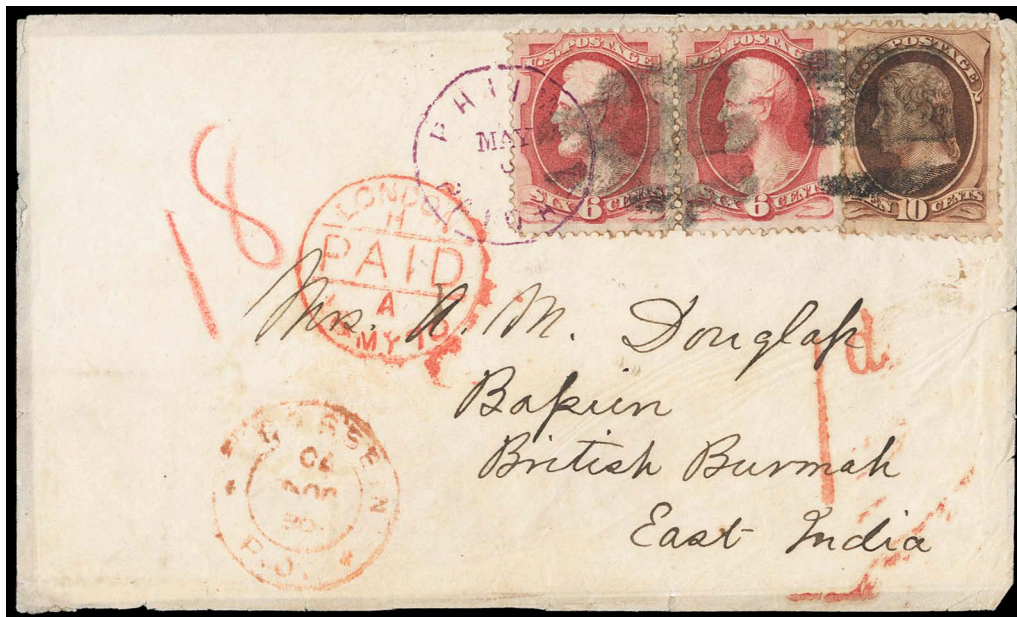 U.S. POSTAGE
SIX 6 CENTS
U.S. POSTAGE
SIX 6 CENTS
U.S. POSTAGE
TEN 10 CENTS
MAY
18
LONDON
H
PAID
A
MY 10
Mrs. A. M. Douglaſs
Baſsein
British Burmah
East India
1d
BASSEIN
P.O.